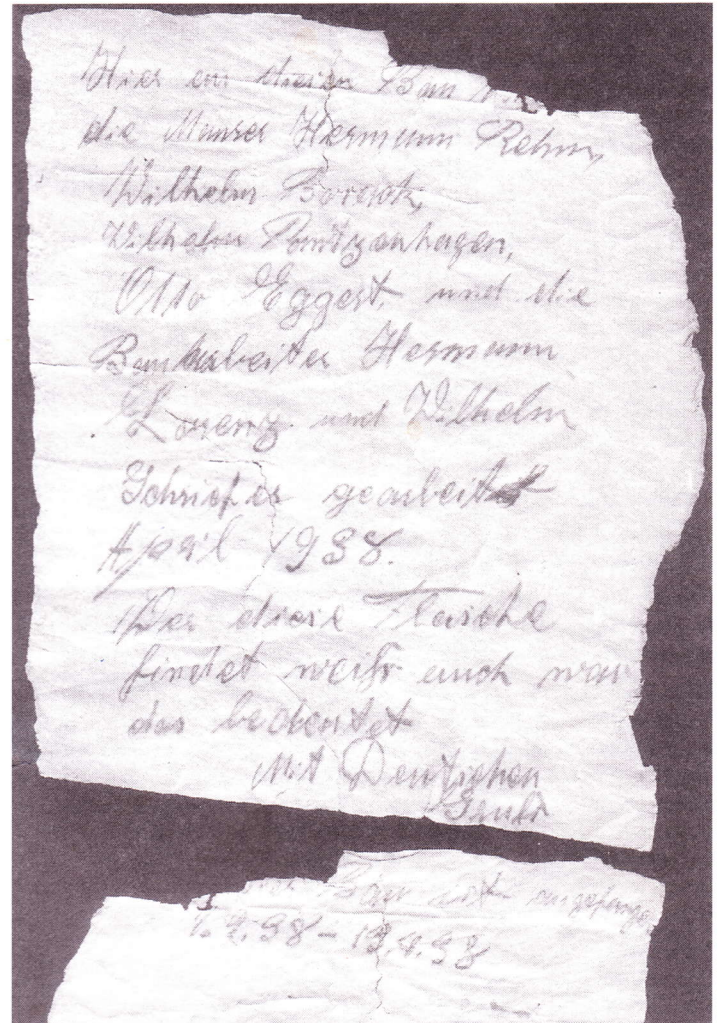 Hier an diesen Bau
die Maurer Hermann Rehm,
Wilhelm
Wilhelm Pantzenhagen,
Otto Eggert, und die
Bauarbeiter Hermann
Lorenz und Wilhelm
Schriefer gearbeitet
April 1938.
Wer diese Flasche
findet weiß auch was
das bedeutet
Mit Deutschen
Gruß
Bau ist angefangen
38 - 13.4.38